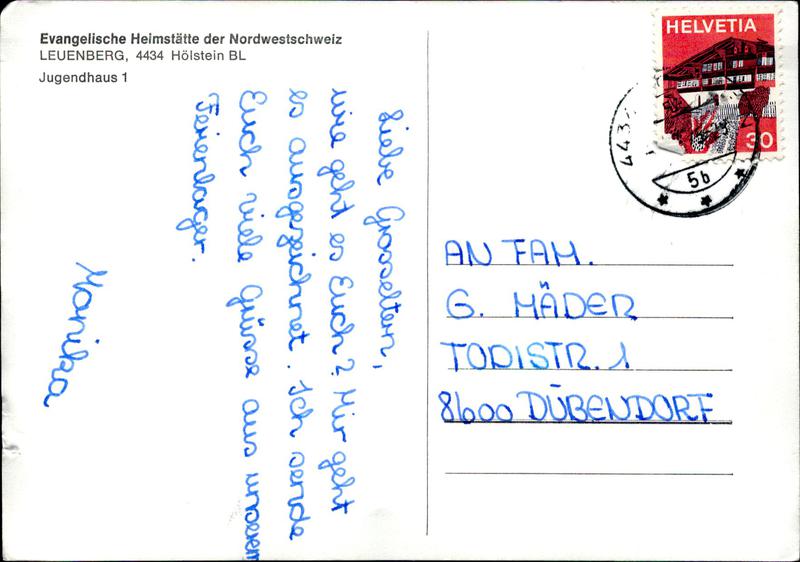 Evangelische Heimstätte der Nordwestschweiz
LEUENBERG, 4434 Hölstein BL
Jugendhaus 1
Liebe Grosseltern,
wie geht es Euch? Mir geht
es ausgezeichnet. Ich sende
Euch viele Grüsse aus unserem
Ferienlager.
Marika
HELVETIA
30
443
5b
AN FAM.
G. MÄDER
TÖDISTR. 1
8600 DÜBENDORF